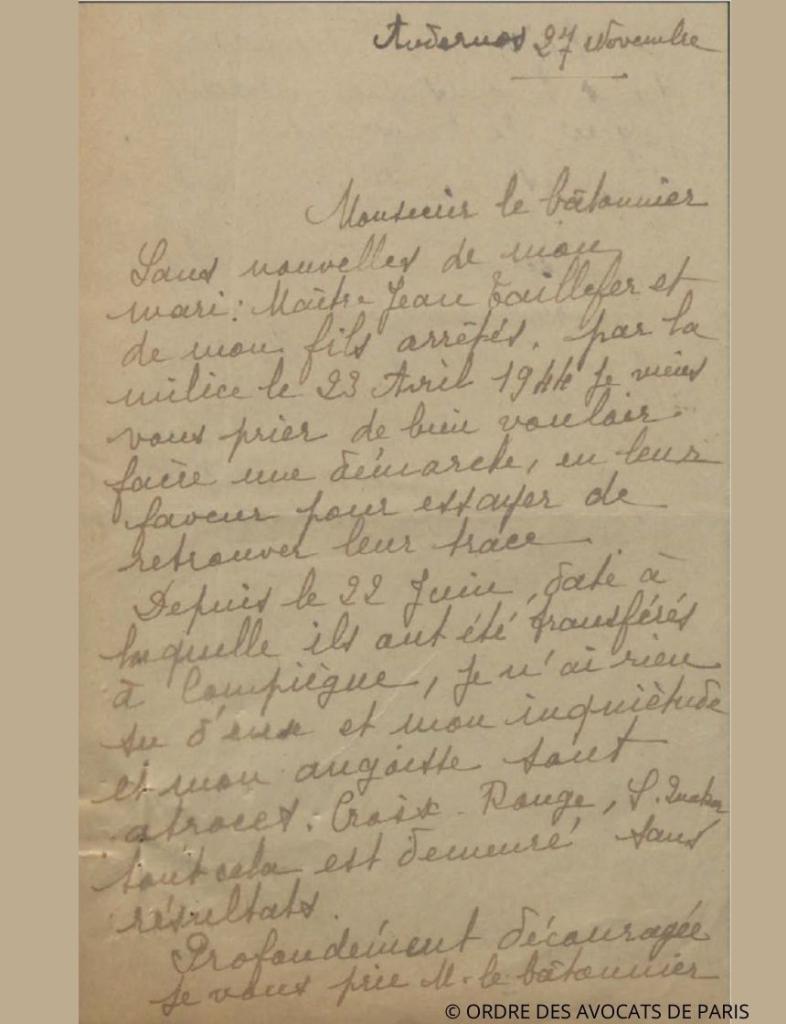 Andernos 27 Novembre
Monsieur le bâtonnier
Sans nouvelles de mon
mari : Maître Jean Taillefer et
de mon fils arrêtés, par la
milice le 23 Avril 1944 Je viens
vous prier de bien vouloir
faire une démarche, en leur
faveur pour essayer de
retrouver leur trace
Depuis le 22 Juin, date à
laquelle ils ont été transférés
à Compiègne, Je n'ai rien
su d'eux et mon inquiètude
et mon angoisse sont
atroces. Croix-Rouge, S. Quaker
tout cela est demeuré sans
résultats.
Profondément découragée
Je vous prie M. le bâtonnier
© ORDRE DES AVOCATS DE PARIS